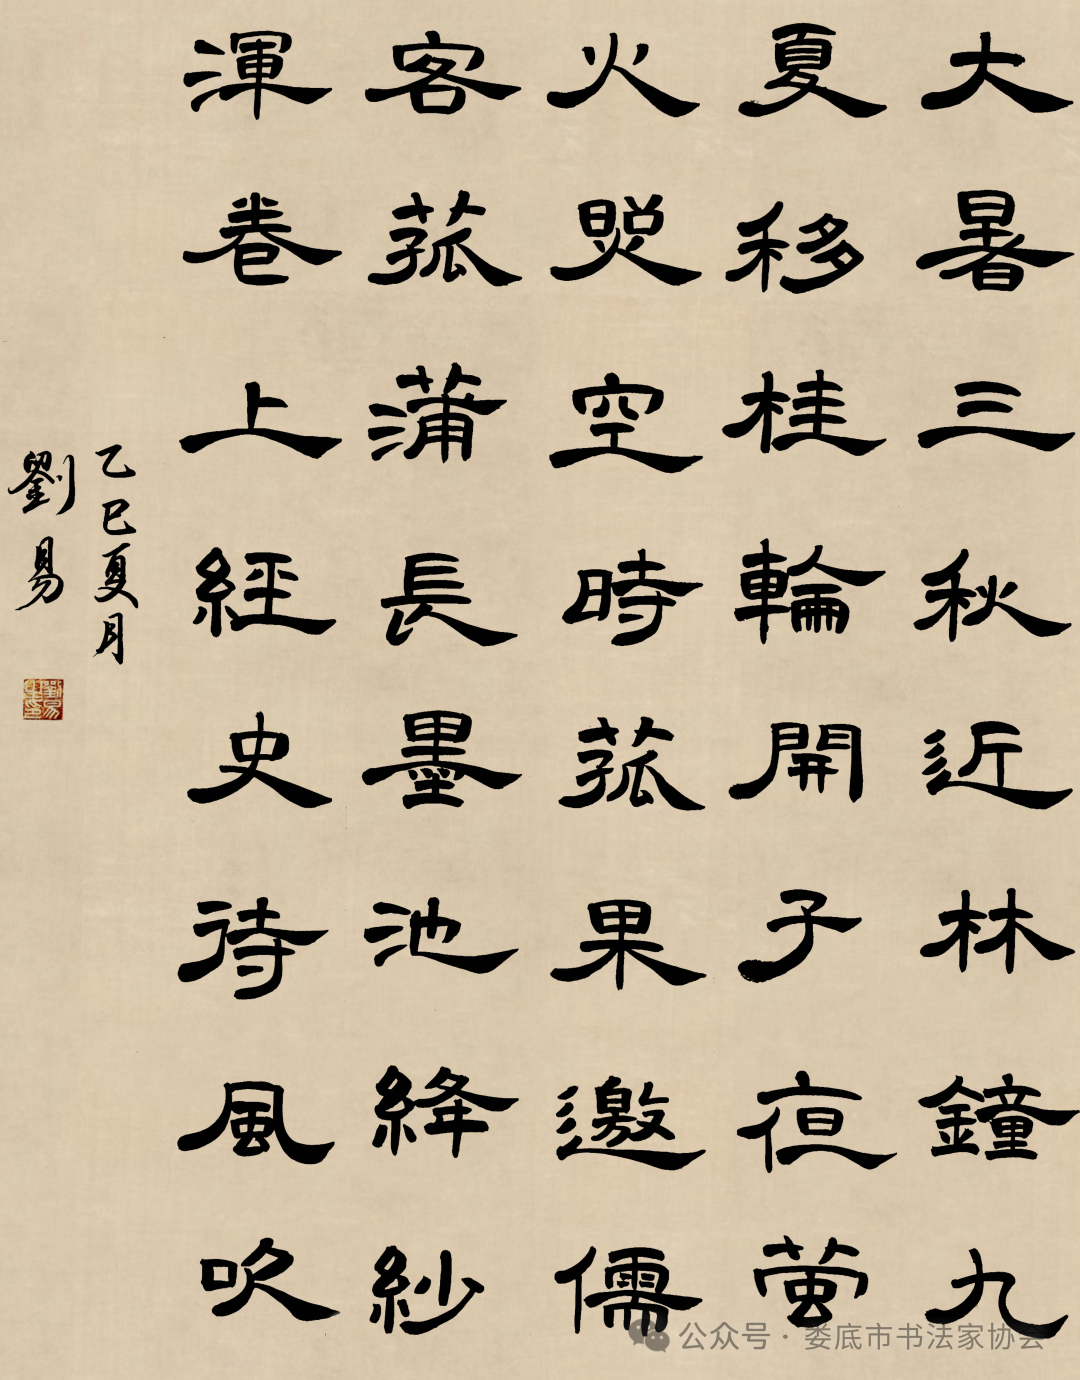 大暑三秋近林鐘九
夏移桂輪開子夜螢
火照空時菰果邀儒
客菰蒲長墨池絳紗
渾卷上經史待風吹
乙巳夏月
劉易
公众号·娄底市书法家协会